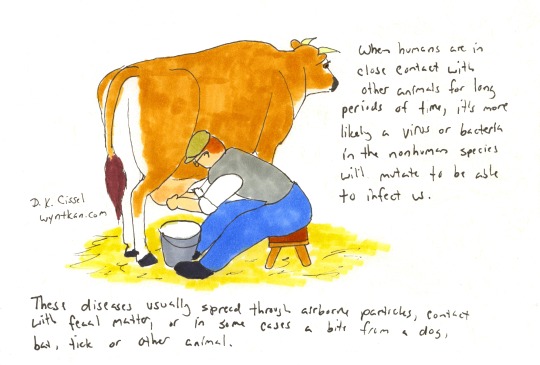 When humans are in
close contact with
other animals for long
periods of time, it's more
likely a virus or bacteria
in the nonhuman species
will mutate to be able
to infect us.
D. K. Cissel
wyntkan.com
These diseases usually spread through airborne particles, contact
with fecal matter, or in some cases a bite from a dog,
bat, tick or other animal.